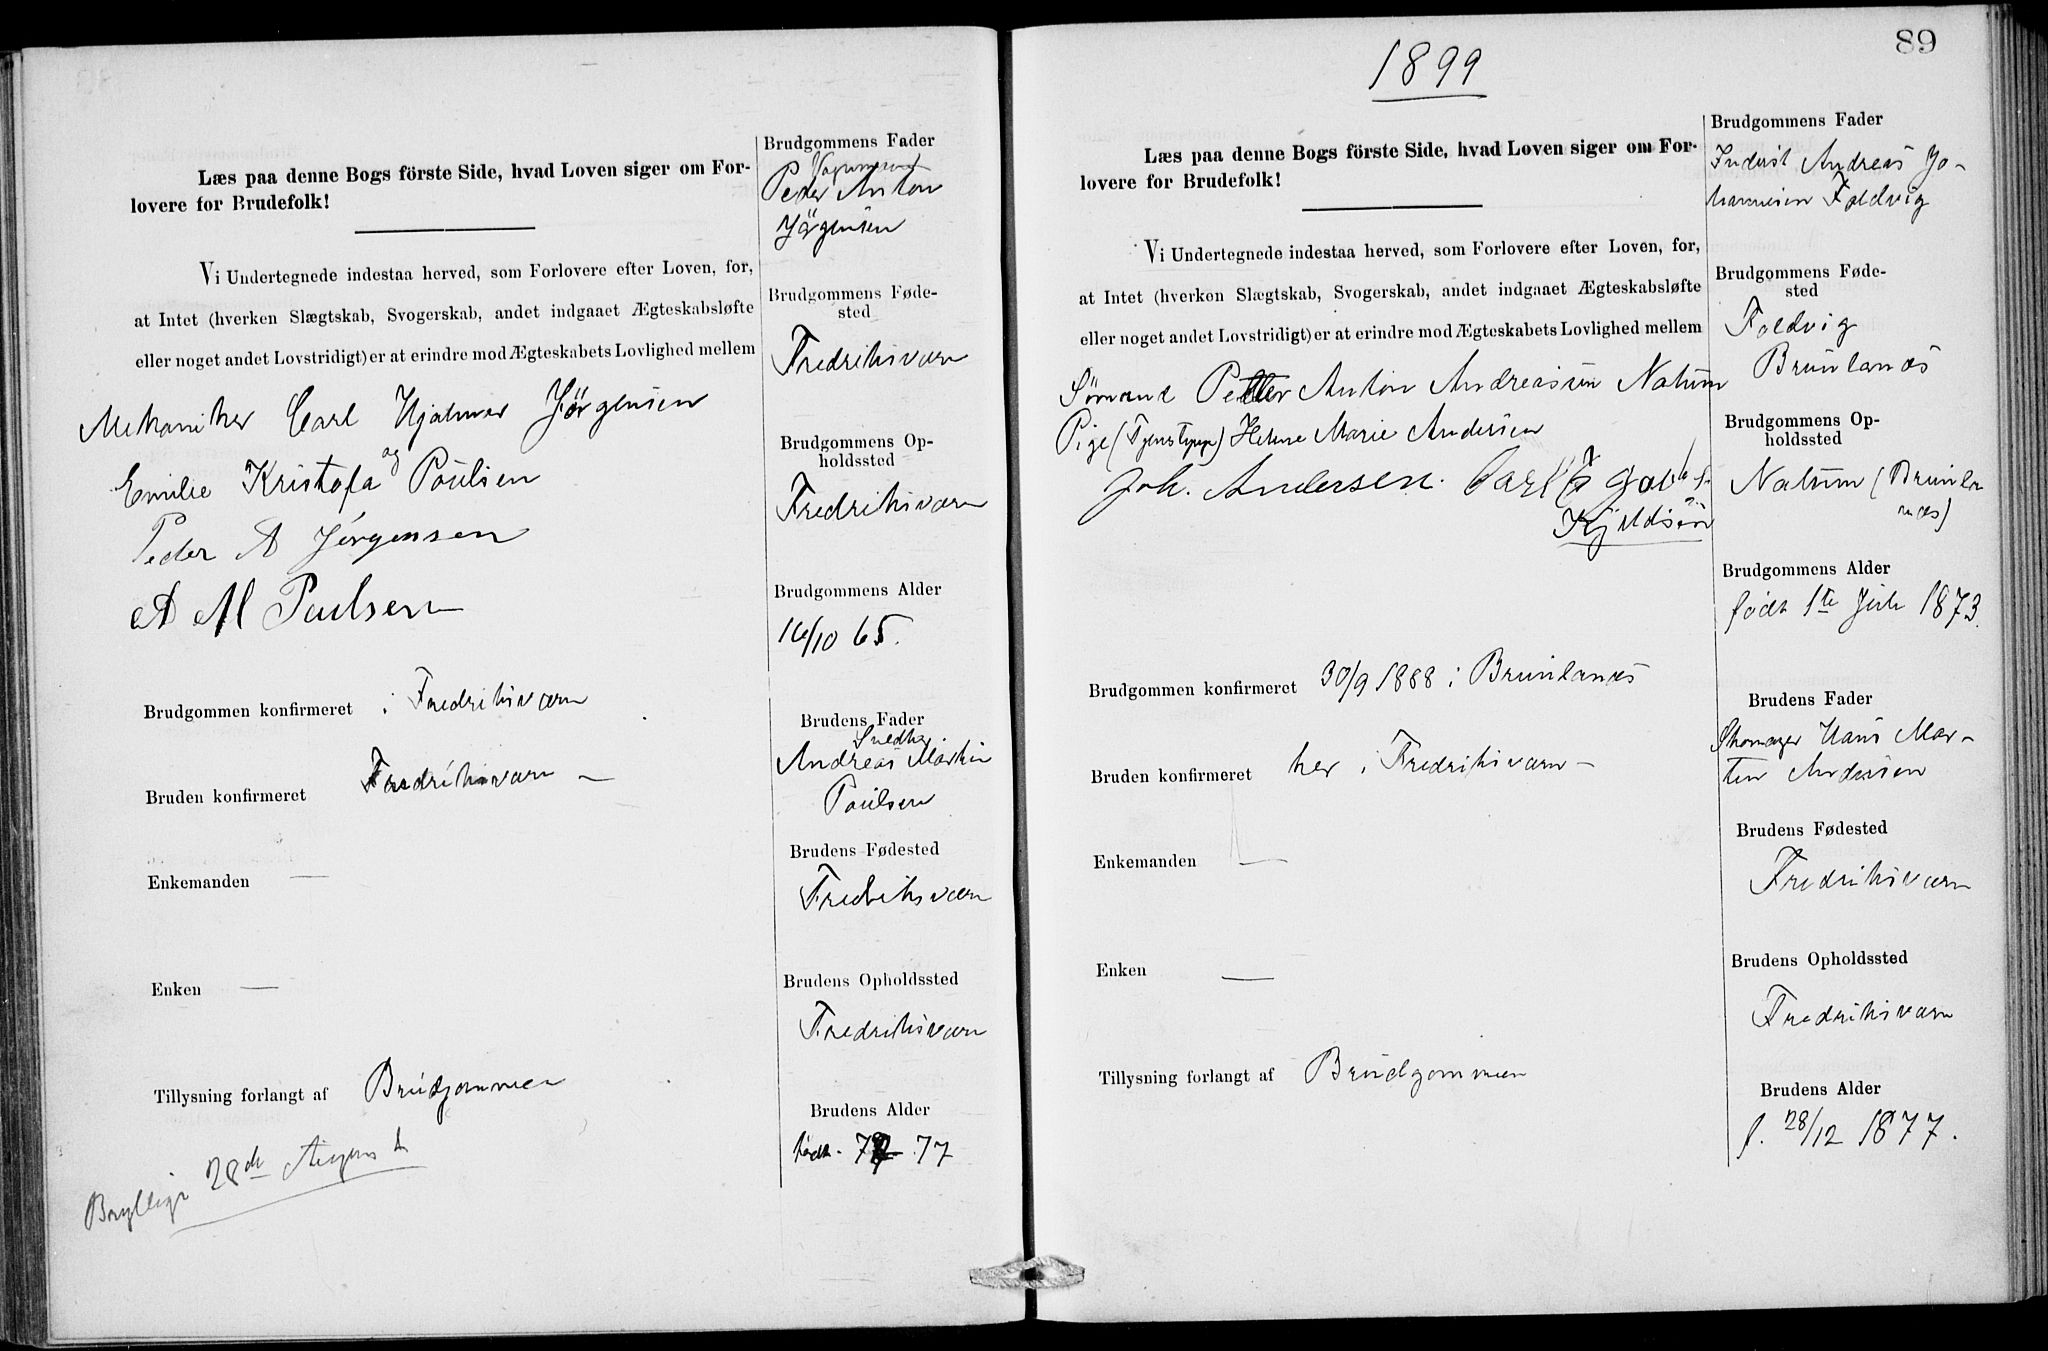 Læs paa denne Bogs förste Side, hvad Loven siger om For-
lovere for Brudefolk!
Vi Undertegnede indestaa herved, som Forlovere efter Loven, for,
at Intet (hverken Slægtskab, Svogerskab, andet indgaaet Ægteskabsløfte
eller noget andet Lovstridigt) er at erindre mod Ægteskabets Lovlighed mellem
Mekaniker Carl Hjalmar Jörgensen
og
Emilie Kristofa Poulsen
Peder A Jörgensen
A M Paulsen
Brudgommen konfirmeret i Fredriksværn
Bruden konfirmeret Fredriksværn –
Enkemanden —
Enken —
Tillysning forlangt af Brudgommen
Bryllup 28de August
Brudgommens Fader
Peder Anton
Jörgensen
Brudgommens Føde-
sted
Fredriksværn
Brudgommens Op-
holdssted
Fredriksværn
Brudgommens Alder
16/10 65.
Brudens Fader
Andreas Martin
Poulsen
Brudens Fødested
Fredriksværn
Brudens Opholdssted
Fredriksværn
Brudens Alder
født 77
89
1899
Læs paa denne Bogs förste Side, hvad Loven siger om For-
lovere for Brudefolk!
Vi Undertegnede indestaa herved, som Forlovere efter Loven, for,
at Intet (hverken Slægtskab, Svogerskab, andet indgaaet Ægteskabsløfte
eller noget andet Lovstridigt) er at erindre mod Ægteskabets Lovlighed mellem
Sömand Petter Anton Andreassen Nalum
Pige (Tjenstepige) Helene Marie Andersen
Joh. Andersen. Carl
Kjeldsen
Brudgommen konfirmeret 30/9 1888 i Brunlanæs
Bruden konfirmeret her i Fredriksværn –
Enkemanden —
Enken —
Tillysning forlangt af Brudgommen
Brudgommens Fader
Inderst Andreas Jo-
hannesen Foldvig
Brudgommens Føde-
sted
Foldvig
Brunlanæs
Brudgommens Op-
holdssted
Nalum (Brunla
næs)
Brudgommens Alder
født 1te Juli 1873.
Brudens Fader
Skomager Hans Mar-
tin Andersen
Brudens Fødested
Fredriksværn
Brudens Opholdssted
Fredriksværn
Brudens Alder
f. 28/12 1877.